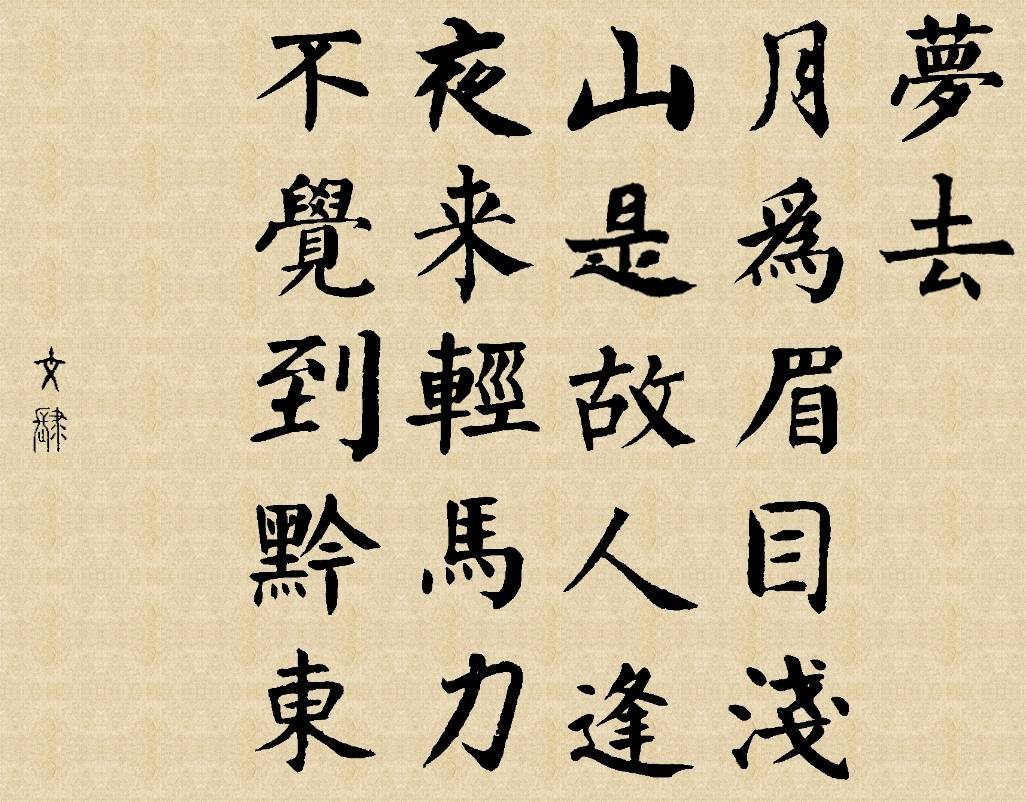 夢去
月為眉目淺
山是故人逢
夜来輕馬力
不覺到黔東
文肆